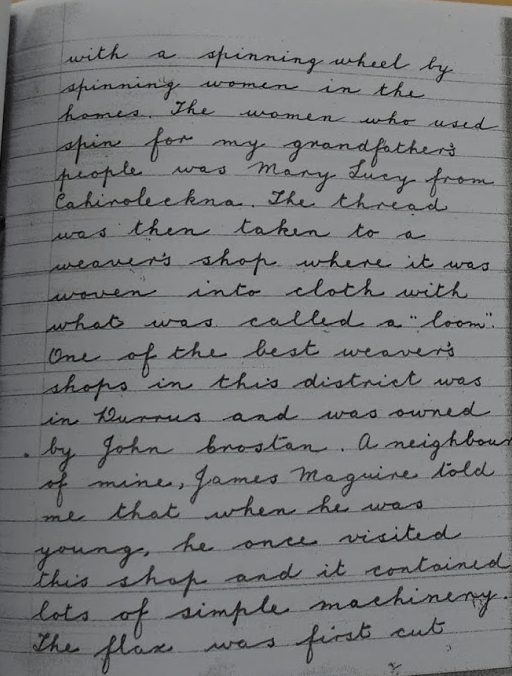 with a spinning wheel by
spinning women in the
homes. The women who used
spin for my grandfather's
people was Mary Lucy from
Cahiroleckna. The thread
was then taken to a
weaver's shop where it was
woven into cloth with
what was called a "loom".
One of the best weaver's
shops in this district was
in Durrus and was owned
by John Crostan. A neighbour
of mine, James Maguire told
me that when he was
young, he once visited
this shop and it contained
lots of simple machinery.
The flax was first cut